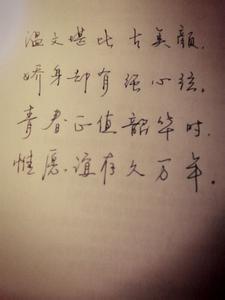 温文堪比古美颜.
娇身却有强心弦。
青春正值韶华时.
惟愿.谊存久万年。